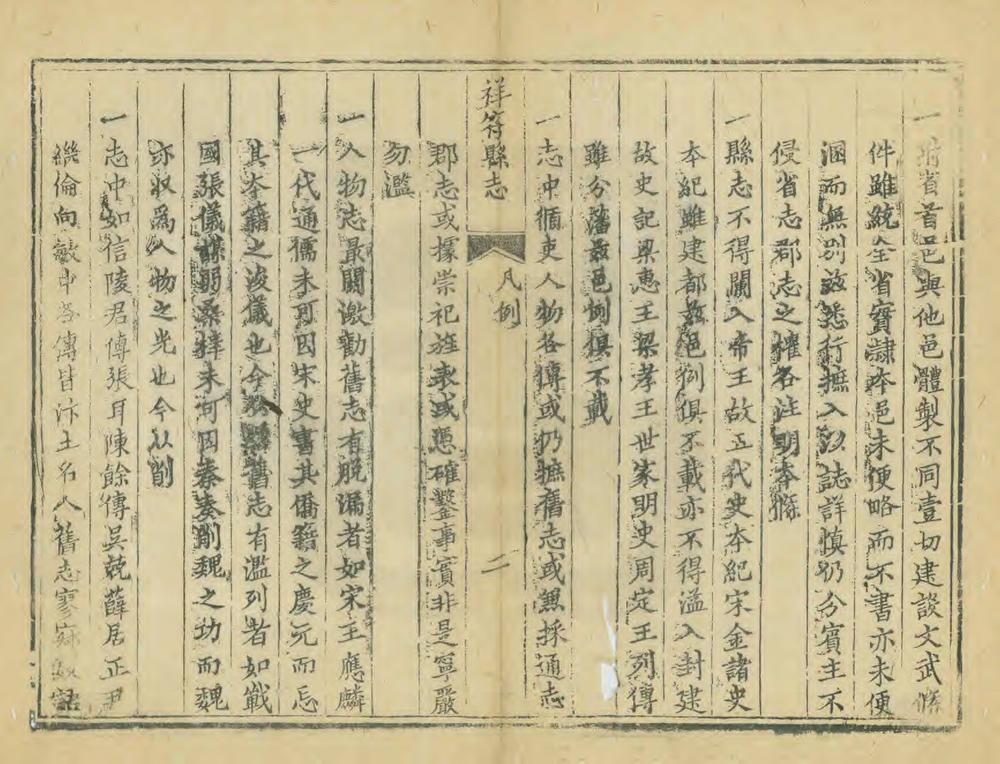 一附省首邑與他邑體製不同壹切建設文武條
件雖統全省實隷本邑未便略而不書亦未便
溷而無别兹悉行摭入以誌詳慎仍分賓主不
侵省志郡志之權各注明本條
一縣志不得闌入帝王故五代史本紀宋金諸史
本紀雖建都兹邑例俱不載亦不得溢入封建
故史記梁惠王梁孝王世家明史周定王列傳
雖分藩兹邑例俱不載
一志中循吏人物各傳或仍摭舊志或兼採通志
祥符縣志 凡例 二
郡志或據崇祀旌表或憑確鑿事實非是寧嚴
勿濫
一人物志最關激勸舊志有脱漏者如宋王應麟
一代通儒未可因宋史書其僑籍之慶元而忘
其本籍之浚儀也今 舊志有濫列者如戰
國張儀謀弱桑梓未可因秦 削魏之功而魏
亦収為人物之光也今以削
一志中如信陵君傳張耳陳餘傳吳兢薛居正尹
繼倫向敏中各傳皆汴土名人舊志寥寥數語